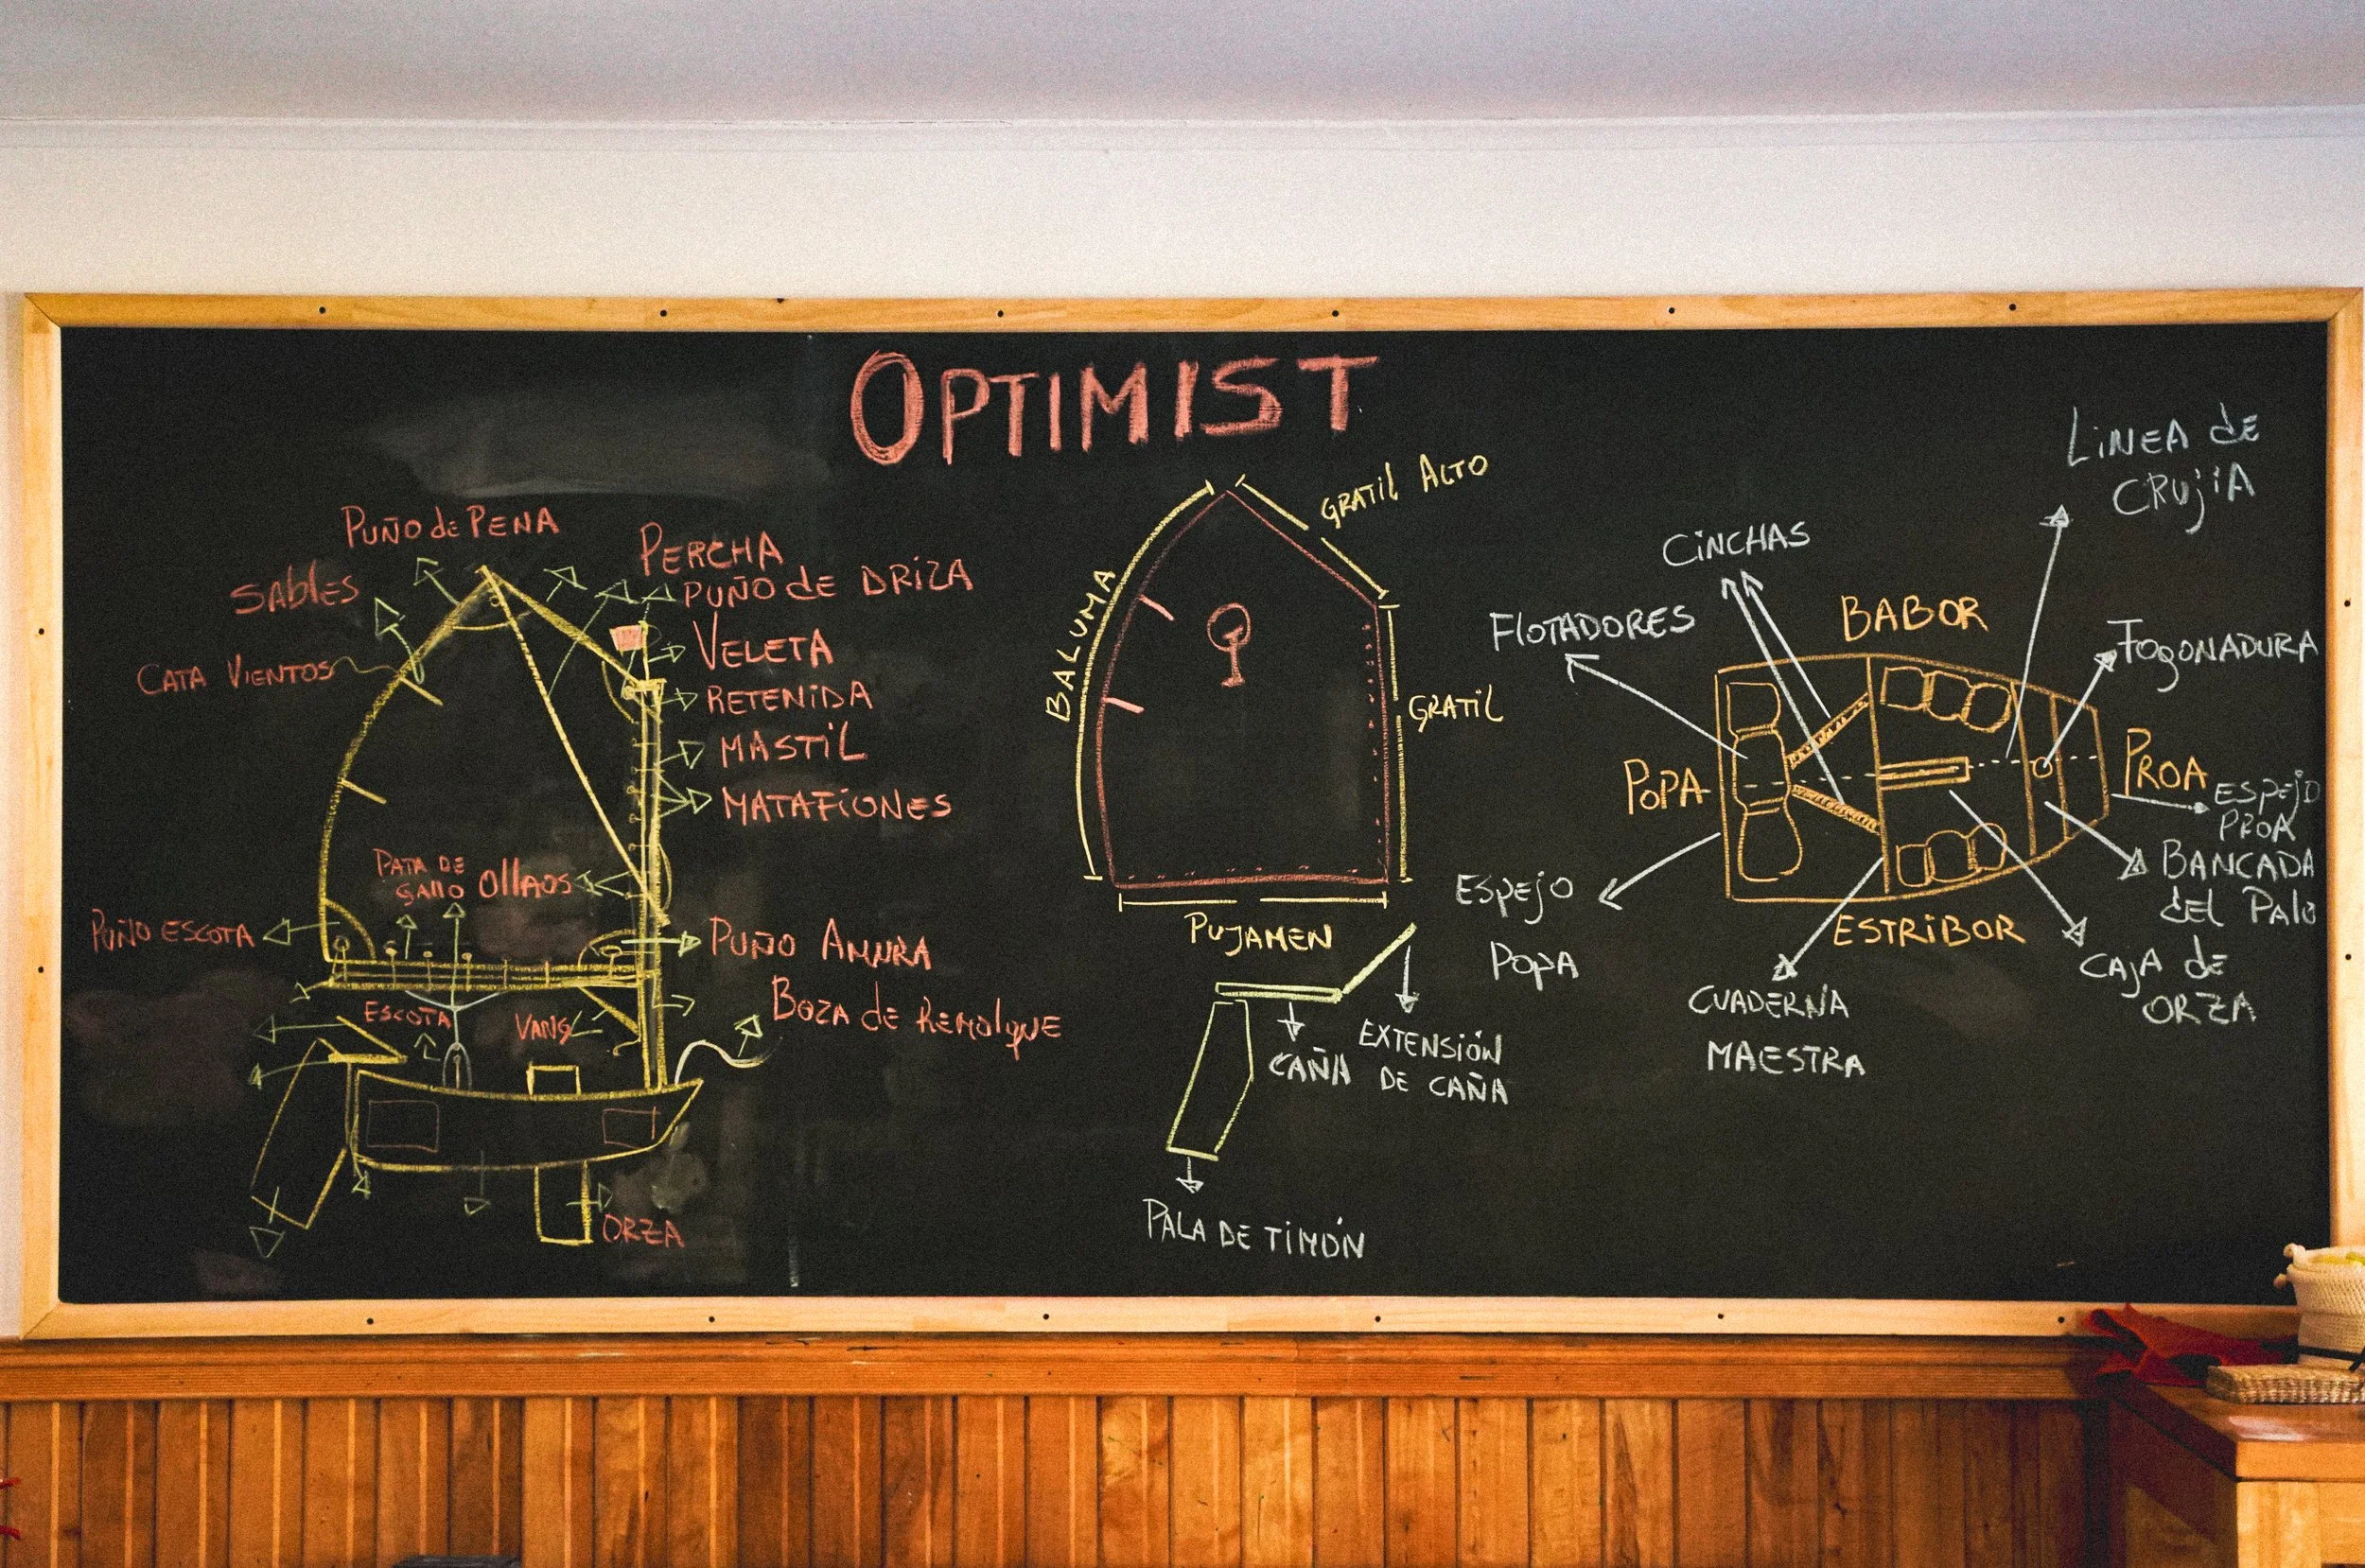 OPTIMIST
PUÑO de PENA
SABlES
CATA VIENTOS
PERCHA
PUÑO dE DRIZA
VELETA
RETENIDA
MASTiL
MATAFIONES
PATA DE
gAllO
OllAOS
PUÑO ESCOTA
PUÑO AMURA
ESCOTA
VANG
BOZA de REMOlqUE
ORZA
GRATIL ALTO
BALUMA
GRATIL
PUJAMEN
CAÑA
EXTENSIÓN
DE CAÑA
PALA DE TIMÓN
LiNEA dE
CRUjiA
CiNCHAS
FlOTADORES
BABOR
FOgONADURA
POPA
PROA
ESPEjO
PROA
BANCADA
dEL PAlO
ESPEjO
POPA
ESTRiBOR
CAjA dE
ORZA
CUADERNA
MAESTRA